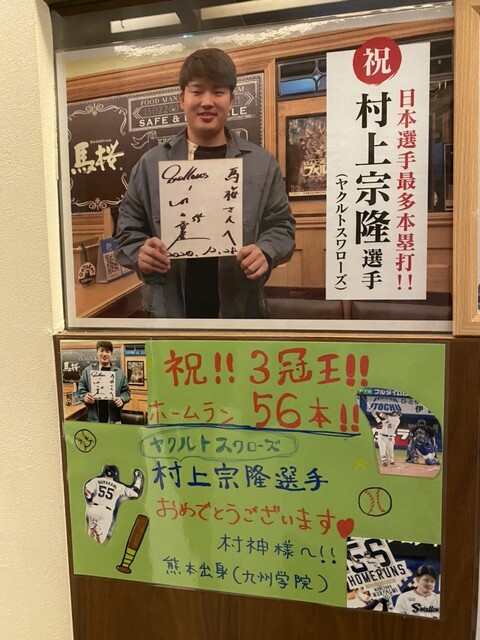 FOOD MAN
SAFE &
馬桜
馬桜さんへ
Swallows
2020.12.28
祝
日本選手最多本塁打!!
村上宗隆選手
(ヤクルトスワローズ)
祝!! 3冠王!!
ホームラン 56本!!
ヤクルトスワローズ
村上宗隆選手
おめでとうございます
村神様へ!!
熊本出身(九州学院)
55
フルタイム
ITOCHU
56
HOMERUNS
Swallows